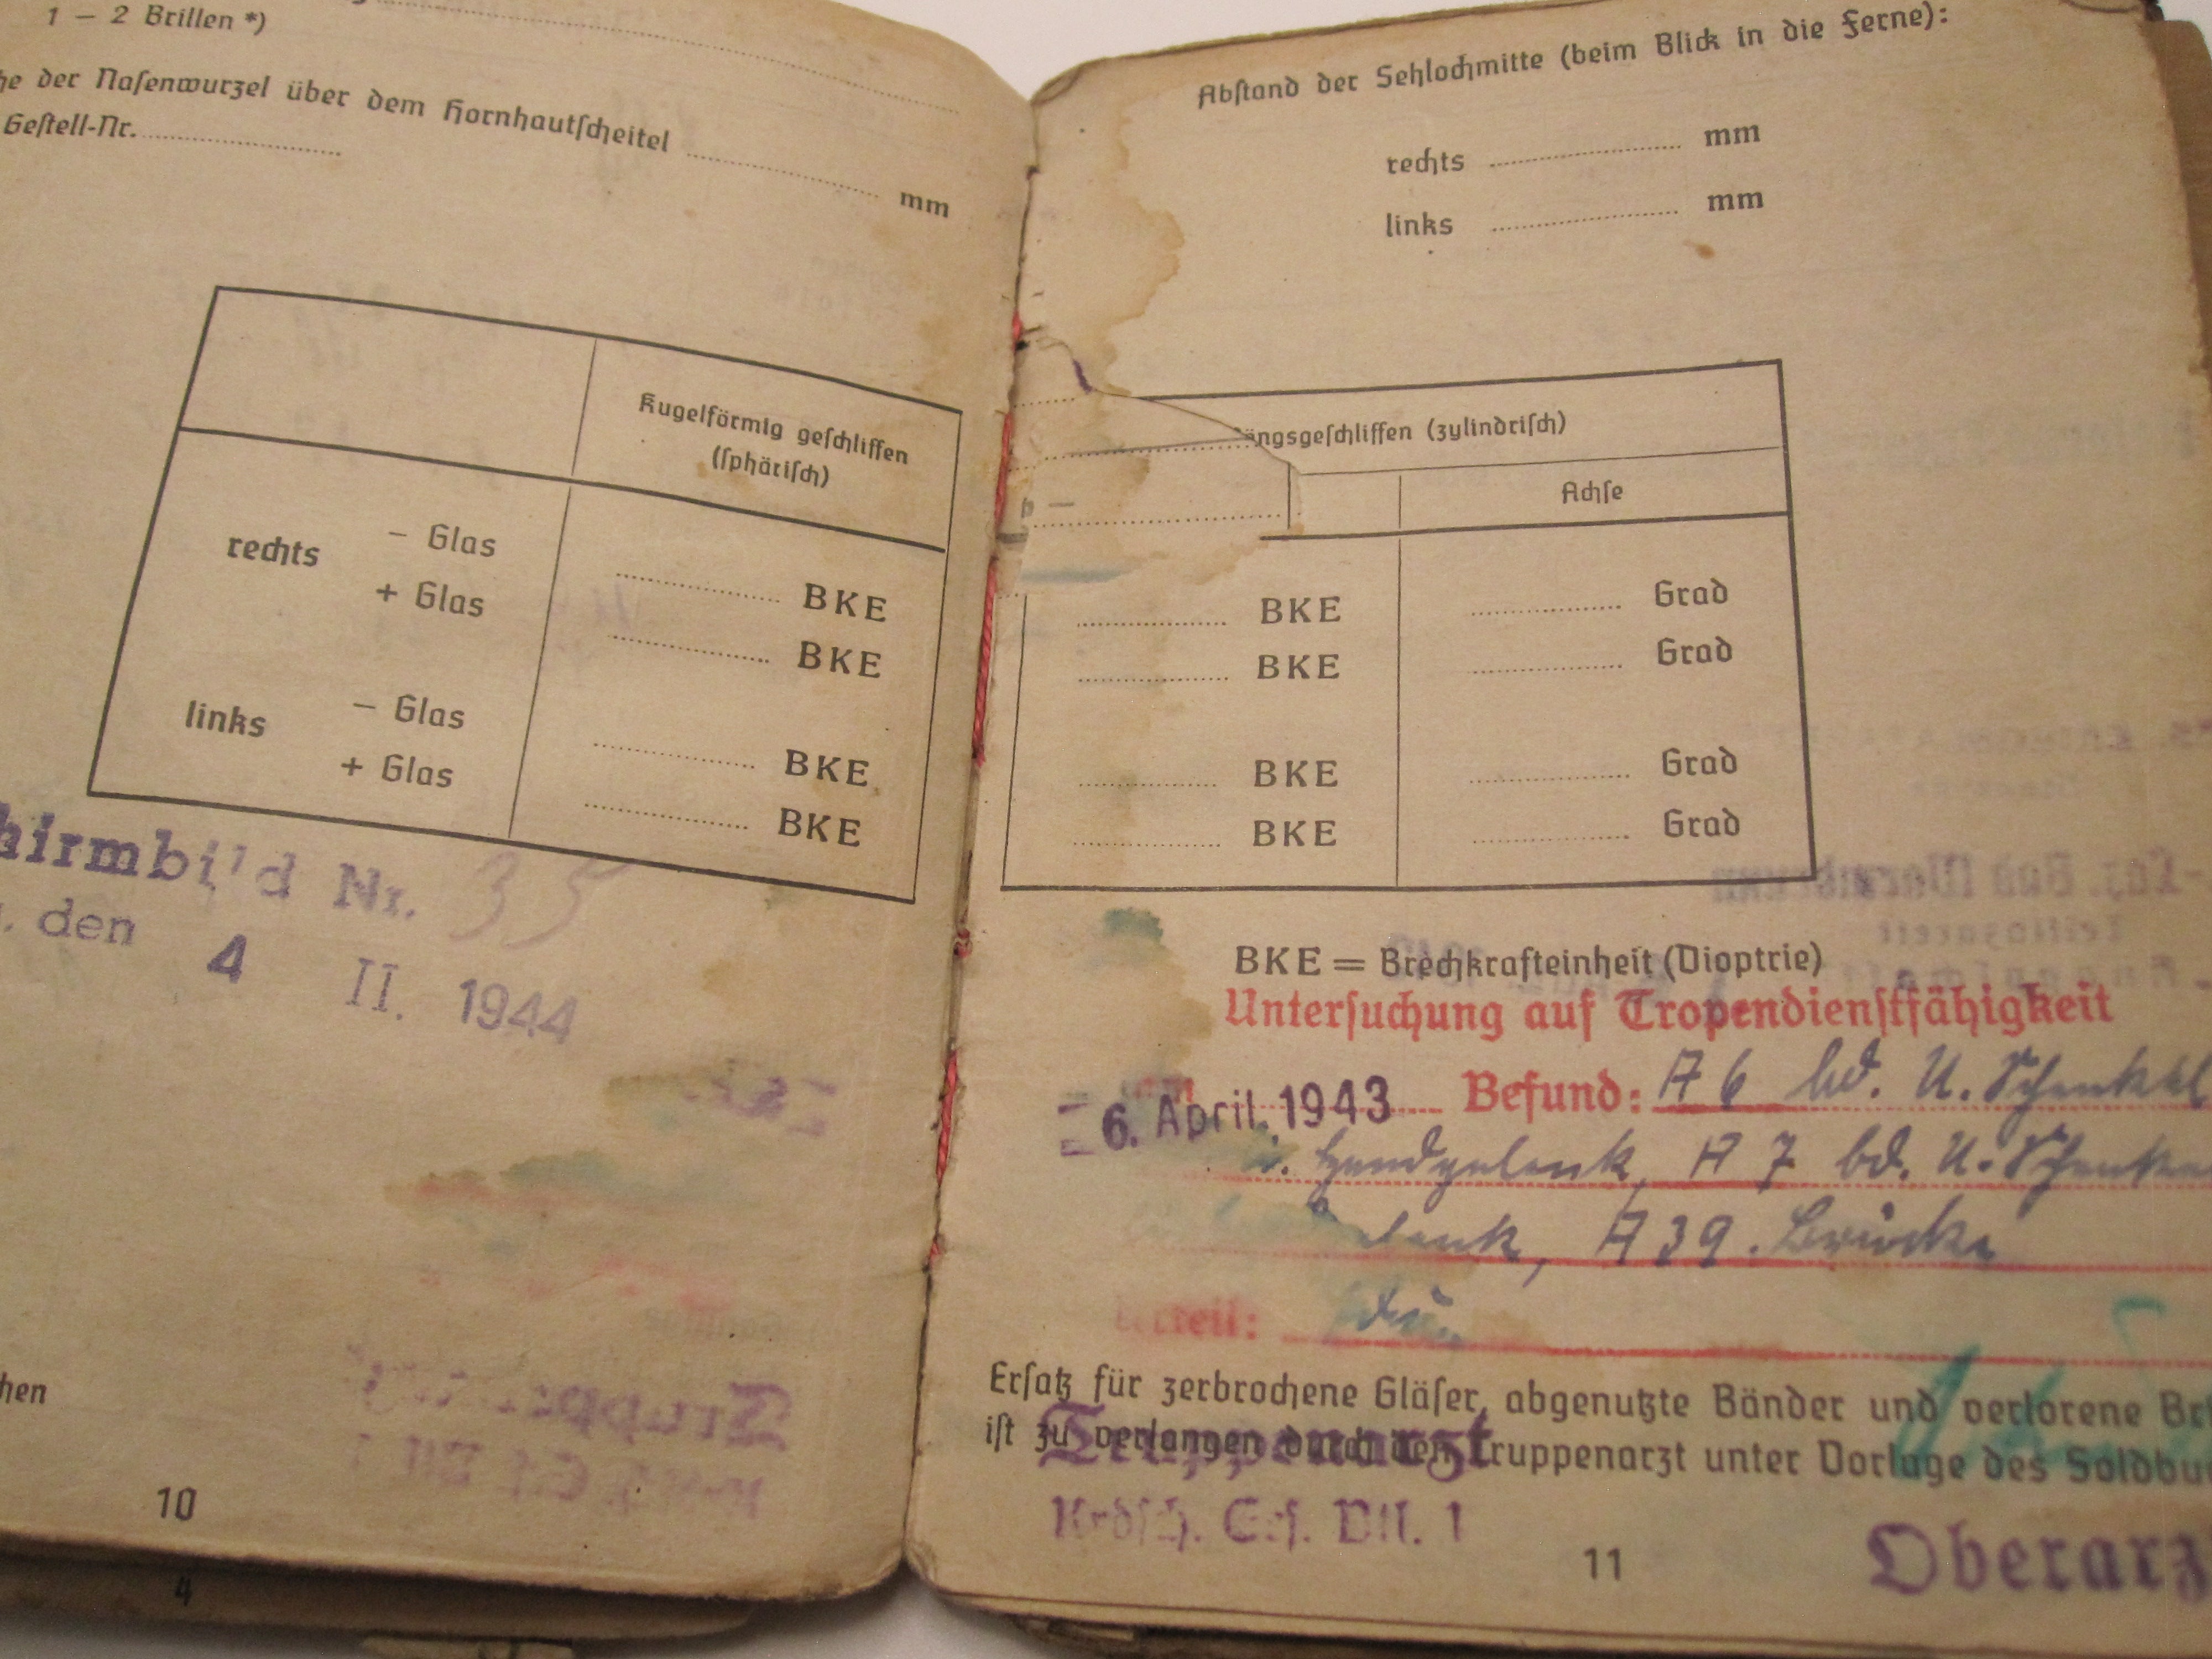 1 – 2 Brillen *)
he der Naſenwurzel über dem Hornhautſcheitel ........ mm
Geſtell-Nr. ........
Kugelförmig geſchliffen
(ſphäriſch)
rechts – Glas ........ BKE
+ Glas ........ BKE
links – Glas ........ BKE
+ Glas ........ BKE
hirmbild Nr. 35
, den 4 II. 1944
hen
10
4
Abſtand der Sehlochmitte (beim Blick in die Ferne):
rechts ........ mm
links ........ mm
ängsgeſchliffen (zylindriſch)
Achſe
........ BKE ........ Grad
........ BKE ........ Grad
........ BKE ........ Grad
........ BKE ........ Grad
BKE = Brechkrafteinheit (Dioptrie)
Unterſuchung auf Tropendienſtfähigkeit
6. April 1943 Befund: A 6 bd. U. Schenkel
Handgelenk, A 7 bd. U. Schenkel
lenk, A 39. Brücke
teil:
Erſatz für zerbrochene Gläſer, abgenutzte Bänder und verlorene Br
iſt zu verlangen durch den Truppenarzt unter Vorlage des Soldbu
Truppenarzt
Krdſch. Erſ. Abt. 1
11
Oberarz